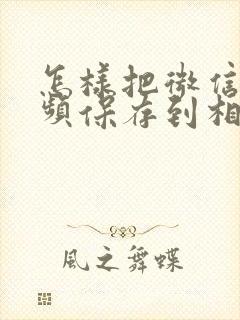 怎樣把微信
頻保存到相
風之舞蝶